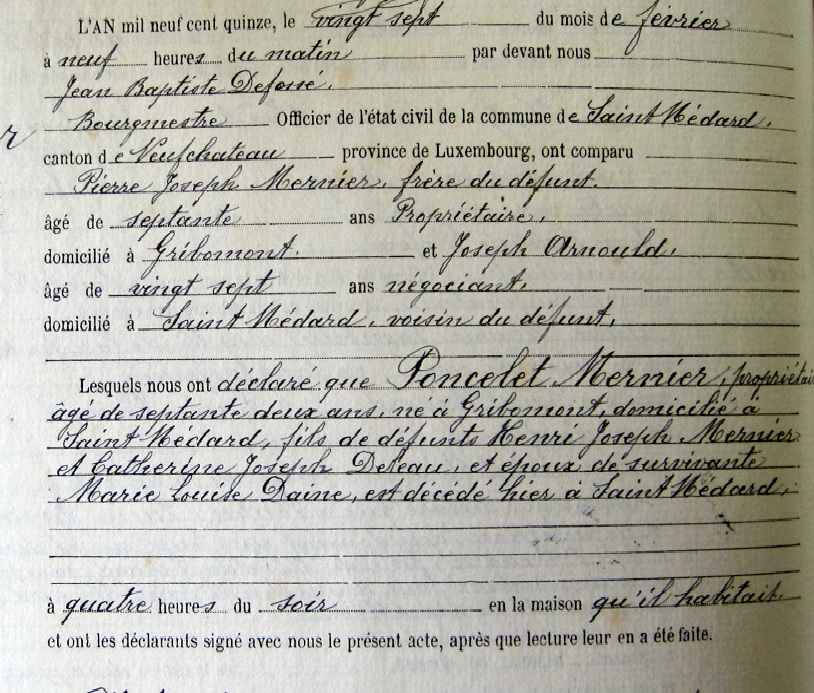 L'AN mil neuf cent quinze, le vingt sept du mois de février
à neuf heures du matin par devant nous
Jean Baptiste Defossé.
Bourgmestre Officier de l'état civil de la commune de Saint Médard,
canton de Neufchateau province de Luxembourg, ont comparu
Pierre Joseph Mernier, frère du défunt.
âgé de septante ans Propriétaire,
domicilié à Gribomont. et Joseph Arnould,
âgé de vingt sept ans négociant,
domicilié à Saint Médard, voisin du défunt,
Lesquels nous ont déclaré que Poncelet Mernier, propriétai
âgé de septante deux ans, né à Gribomont, domicilié à
Saint Médard, fils de défunts Henri Joseph Mernier
et Catherine Joseph Deleau, et époux de survivante
Marie Louise Daine, est décédé hier à Saint Médard,
à quatre heures du soir en la maison qu'il habitait
et ont les déclarants signé avec nous le présent acte, après que lecture leur en a été faite.